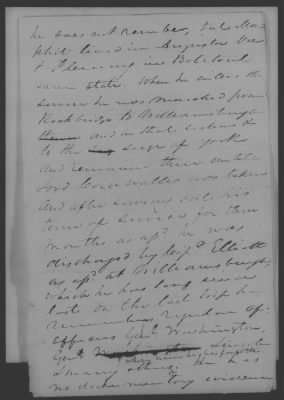 he does not remember, but Ma-
phit lived in Augusta Va
& Fleming in Botetout
same State. When he entered the
service he was marched from
Rockbridge to Williamsburgh
and in that section &
to the seige of york
and remained there untill
Lord Cornwallis was taken
And after serving out his
term of service for three
months as afsd he was
discharged by Capt Elliott
as afsd at Williamsburgh,
which he has long since
lost On the last trip he
remembers regular of-
ficers Genl Washington,
Genl Lincoln
& many others whose names he has forgotten. He has
no documentary evidence